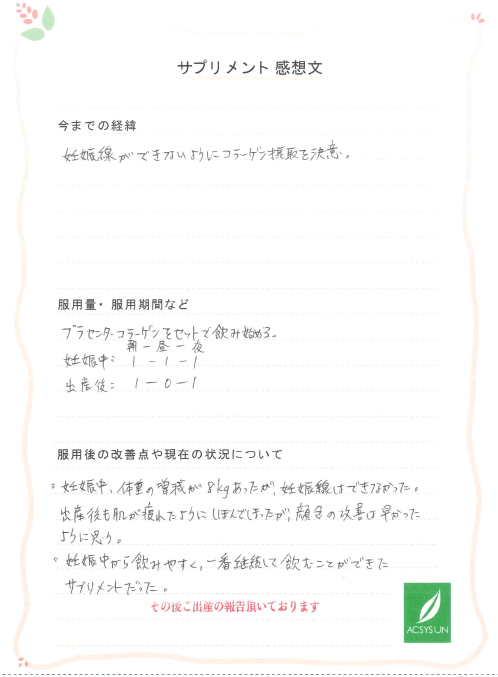 サプリメント 感想文
今までの経緯
妊娠線ができないようにコラーゲン摂取を決意。
服用量・服用期間など
プラセンタ・コラーゲンをセットで飲み始める。
朝 ー 昼 ー 夜
妊娠中： 1 - 1 - 1
出産後： 1 - 0 - 1
服用後の改善点や現在の状況について
。妊娠中、体重の増減が8kgあったが、妊娠線はできなかった。
出産後も肌が疲れたようにしぼんでしまったが、の改善は早かった
ように思う。
。妊娠中から飲みやすく、一番継続して飲むことができた
サプリメントだった。
その後ご出産の報告頂いております
ACSYSUN